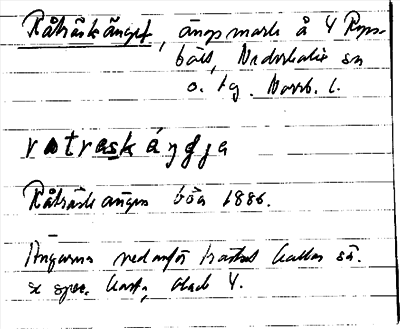 Råträskänget, ängsmark å Y Rys-
bält, Nederkalix sn
o. tg. Norrb. l.
rotraskáŋgja
Råträskängen 1886.
Ängarna nedanför kallas så.
se spec. karta, blad Y.